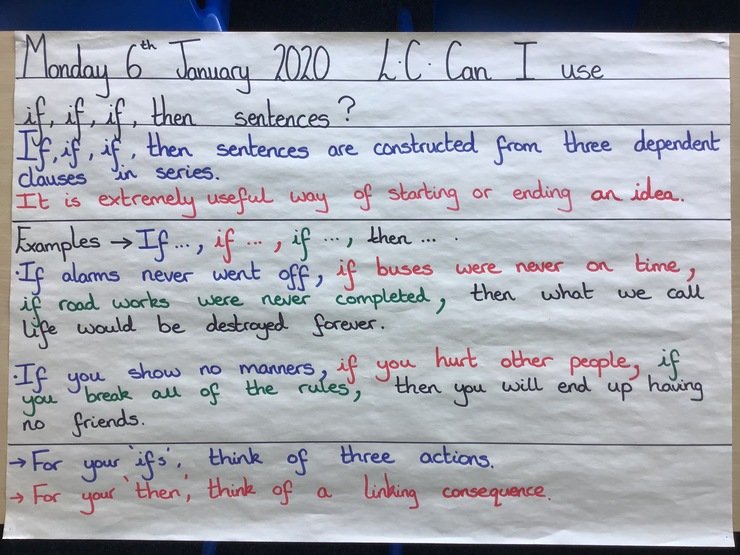 Monday 6th January 2020 L.C. Can I use
if, if, if, then sentences?
If, if, if, then sentences are constructed from three dependent
clauses in series.
It is extremely useful way of starting or ending an idea.
Examples → If ..., if ..., if ..., then ... .
·If alarms never went off, if buses were never on time,
if road works were never completed, then what we call
life would be destroyed forever.
·If you show no manners, if you hurt other people, if
you break all of the rules, then you will end up having
no friends.
→ For your 'ifs', think of three actions.
→ For your 'then', think of a linking consequence.